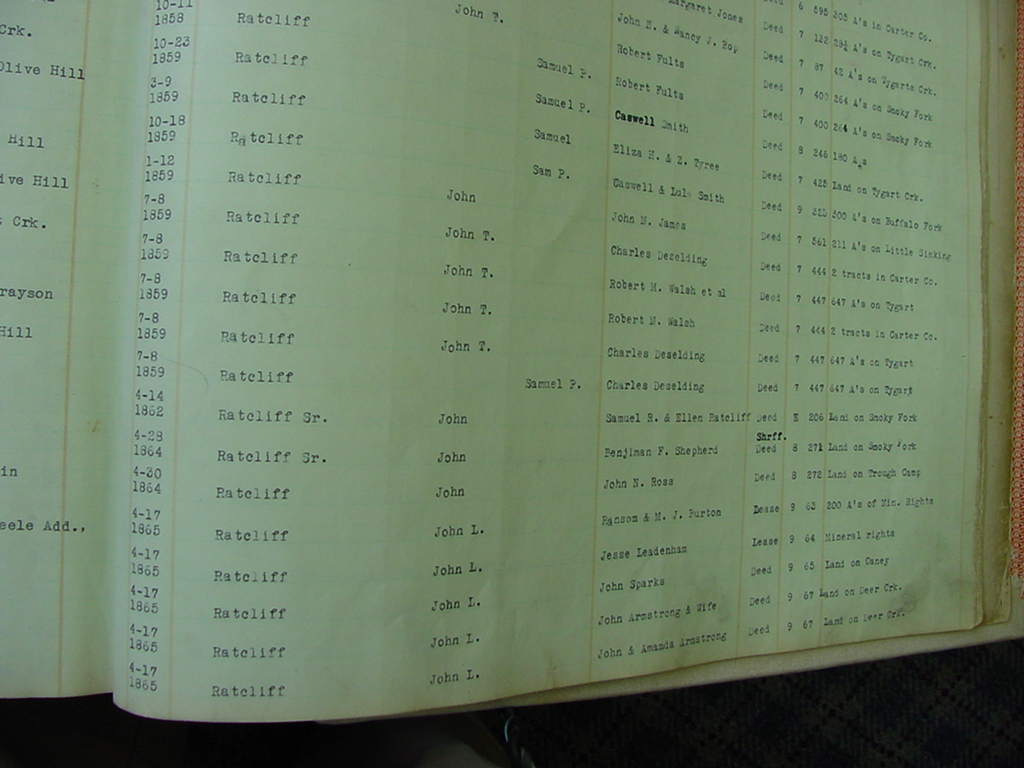 Margaret Jones Deed 6 595 205 A's in Carter Co.
Deed 7 132 A's on Tygart Crk.
John M. & Nancy J. Roy Deed 7 87 42 A's on Tygarts Crk.
John T. Robert Fults Deed 7 400 264 A's on Smoky Fork
10-11
1858 Ratcliff Samuel P. Robert Fults Deed 7 400 264 A's on Smoky Fork
Crk.
10-23
1859 Ratcliff Samuel P. Caswell Smith Deed 8 246 180 A's
Olive Hill
3-9
1859 Ratcliff Samuel Eliza M. & Z. Tyree Deed 7 425 Land on Tygart Crk.
10-18
1859 Ratcliff Sam P. Caswell & Lula Smith Deed 9 500 A's on Buffalo Fork
Hill
1-12
1859 Ratcliff John John M. James Deed 7 561 211 A's on Little Sinking
ive Hill
7-8
1859 Ratcliff John T. Charles Deselding Deed 7 444 2 tracts in Carter Co.
Crk.
7-8
1859 Ratcliff John T. Robert M. Walsh et al Deed 7 447 647 A's on Tygart
7-8
1859 Ratcliff John T. Robert M. Walsh Deed 7 444 2 tracts in Carter Co.
rayson
7-8
1859 Ratcliff John T. Charles Deselding Deed 7 447 647 A's on Tygart
Hill
7-8
1859 Ratcliff Samuel P. Charles Deselding Deed 7 447 647 A's on Tygart
4-14
1862 Ratcliff Sr. John Samuel R. & Ellen Ratcliff Deed E 206 Land on Smoky Fork
4-28 Shrff.
1864 Ratcliff Sr. John Benjiman F. Shepherd Deed 8 271 Land on Smoky Fork
4-30
1864 Ratcliff John John N. Ross Deed 8 272 Land on Trough Camp
in
4-17
1865 Ratcliff John L. Ransom & M. J. Burton Lease 9 63 200 A's of Min. Rights
eele Add.,
4-17
1865 Ratcliff John L. Jesse Leadenham Lease 9 64 Mineral rights
4-17
1865 Ratcliff John L. John Sparks Deed 9 65 Land on Caney
4-17
1865 Ratcliff John L. John Armstrong & Wife Deed 9 67 Land on Deer Crk.
4-17
1865 Ratcliff John L. John & Amanda Armstrong Deed 9 67 Land on Deer Crk.